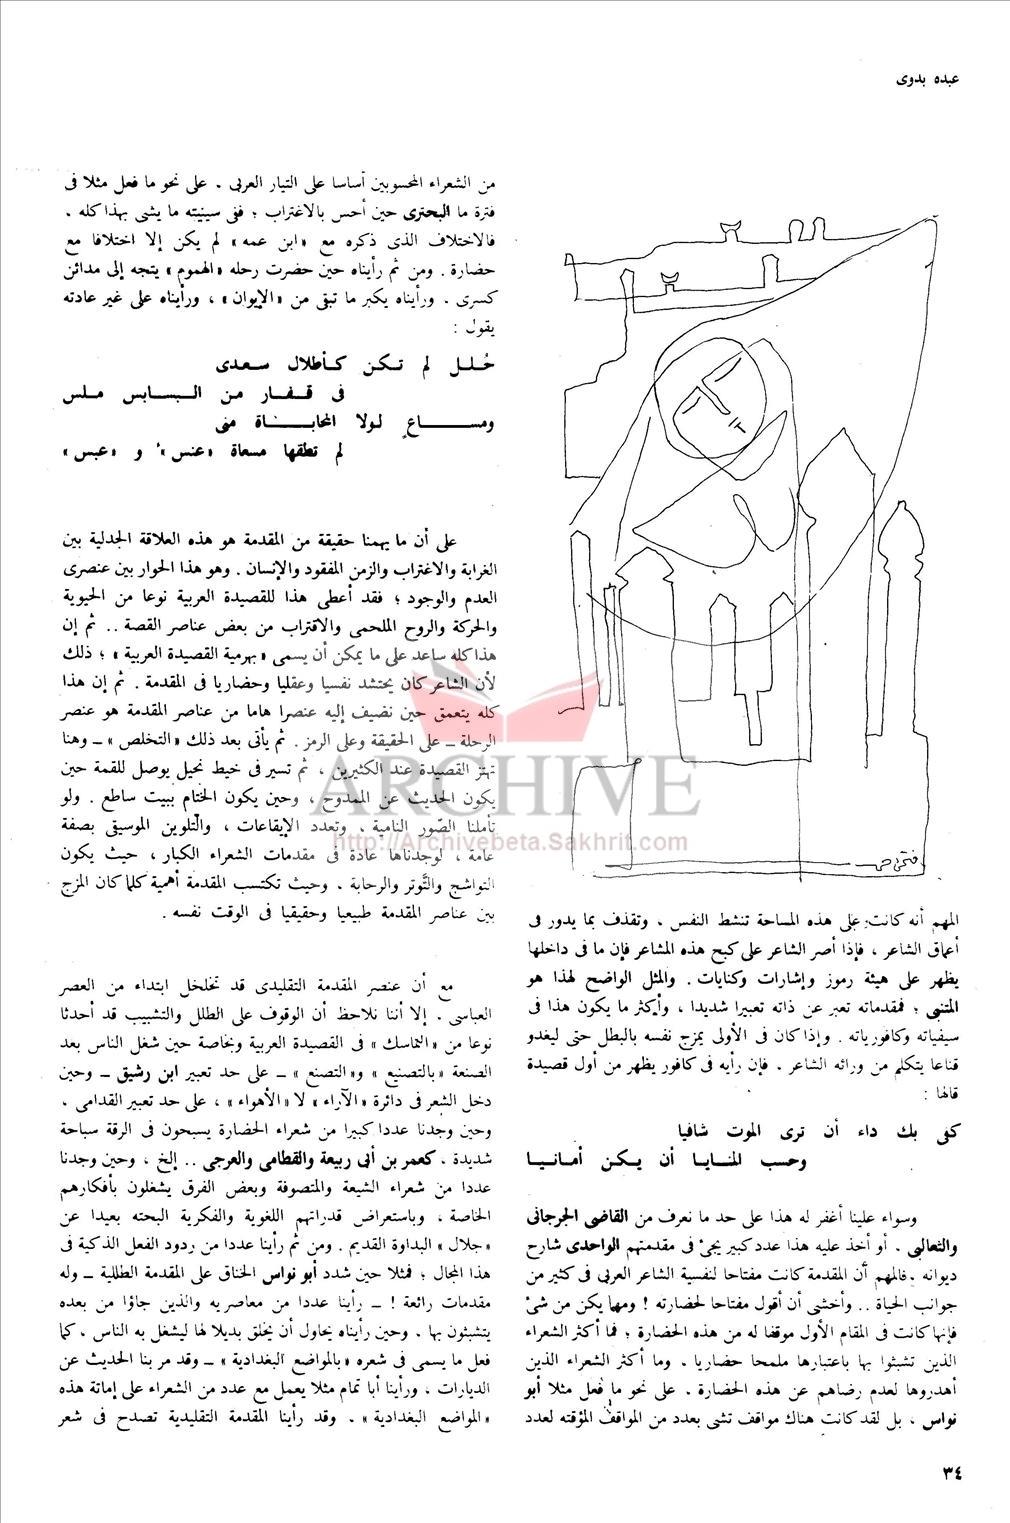 عبده بدوى
المهم أنه كانت على هذه المساحة تنشط النفس ، وتقذف بما يدور فى
أعماق الشاعر ، فإذا أصر الشاعر على كبح هذه المشاعر فإن ما فى داخلها
يظهر على هيئة رموز وإشارات وكنايات . والمثل الواضح لهذا هو
المتنبى ؛ فمقدماته تعبر عن ذاته تعبيرا شديدا ، وأكثر ما يكون هذا فى
سيفياته وكافورياته . وإذا كان فى الأولى يمزج نفسه بالبطل حتى ليغدو
قناعا يتكلم من ورائه الشاعر . فإن رأيه فى كافور يظهر من أول قصيدة
قالها :
كفى بك داء أن ترى الموت شافيا
وحسب المنايا أن يكن أمانيا
وسواء علينا أغفر له هذا على حد ما نعرف من القاضى الجرجانى
والثعالبى . أو أخذ عليه هذا عدد كبير يجئ فى مقدمتهم الواحدى شارح
ديوانه . فالمهم أن المقدمة كانت مفتاحا لنفسية الشاعر العربى فى كثير من
جوانب الحياة .. وأخشى أن أقول مفتاحا لحضارته ! ومهما يكن من شئ
فإنها كانت فى المقام الأول موقفا له من هذه الحضارة ؛ فما أكثر الشعراء
الذين تشبثوا بها باعتبارها ملمحا حضاريا . وما أكثر الشعراء الذين
أهدروها لعدم رضاهم عن هذه الحضارة . على نحو ما فعل مثلا أبو
نواس ، بل لقد كانت هناك مواقف تشى بعدد من المواقف المؤقته لعدد
من الشعراء المحسوبين أساسا على التيار العربى . على نحو ما فعل مثلا فى
فترة ما البحترى حين أحس بالاغتراب ؛ ففى سينيته ما يشى بهذا كله .
فالاختلاف الذى ذكره مع «ابن عمه» لم يكن إلا اختلافا مع
حضارة . ومن ثم رأيناه حين حضرت رحله «الهموم» يتجه إلى مدائن
كسرى . ورأيناه يكبر ما تبقى من «الإيوان» ، ورأيناه على غير عادته
يقول :
حُلل لم تكن كأطلال سعدى
فى قفار من البسابس ملس
ومساعٍ لولا المحاباة منى
لم تطقها مسعاة «عنس» و «عبس»
على أن ما يهمنا حقيقة من المقدمة هو هذه العلاقة الجدلية بين
الغرابة والاغتراب والزمن المفقود والإنسان . وهو هذا الحوار بين عنصرى
العدم والوجود ؛ فقد أعطى هذا للقصيدة العربية نوعا من الحيوية
والحركة والروح الملحمى والاقتراب من بعض عناصر القصة .. ثم إن
هذا كله ساعد على ما يمكن أن يسمى «بهرمية القصيدة العربية» ؛ ذلك
لأن الشاعر كان يحتشد نفسيا وعقليا وحضاريا فى المقدمة . ثم إن هذا
كله يتعمق حين نضيف إليه عنصرا هاما من عناصر المقدمة هو عنصر
الرحلة ــ على الحقيقة وعلى الرمز . ثم يأتى بعد ذلك «التخلص» ــ وهنا
تهتز القصيدة عند الكثيرين ، ثم تسير فى خيط نحيل يوصل للقمة حين
يكون الحديث عن الممدوح ، وحين يكون الختام ببيت ساطع . ولو
تأملنا الصّور النامية ، وتعدد الإيقاعات ، والتلوين الموسيقى بصفة
عامة ، لوجدناها عادة فى مقدمات الشعراء الكبار ، حيث يكون
التواشج والتّوتر والرحابة ، وحيث تكتسب المقدمة أهمية كلما كان المزج
بين عناصر المقدمة طبيعيا وحقيقيا فى الوقت نفسه .
مع أن عنصر المقدمة التقليدى قد تخلخل ابتداء من العصر
العباسى . إلا أننا نلاحظ أن الوقوف على الطلل والتشبيب قد أحدثا
نوعا من «التماسك» فى القصيدة العربية وبخاصة حين شغل الناس بعد
الصنعة «بالتصنيع» و«التصنع» ــ على حد تعبير ابن رشيق ــ وحين
دخل الشعر فى دائرة «الآراء» لا «الأهواء» ، على حد تعبير القدامى .
وحين وجدنا عددا كبيرا من شعراء الحضارة يسبحون فى الرقة سباحة
شديدة . كعمر بن أبى ربيعة والقطامى والعرجى .. إلخ ، وحين وجدنا
عددا من شعراء الشيعة والمتصوفة وبعض الفرق يشغلون بأفكارهم
الخاصة ، وباستعراض قدراتهم اللغوية والفكرية البحته بعيدا عن
«جلال» البداوة القديم . ومن ثم رأينا عددا من ردود الفعل الذكية فى
هذا المجال ؛ فمثلا حين شدد أبو نواس الخناق على المقدمة الطللية ــ وله
مقدمات رائعة ! ــ رأينا عددا من معاصريه والذين جاؤا من بعده
يتشبثون بها . وحين رأيناه يحاول أن يخلق بديلا لها ليشغل به الناس . كما
فعل ما يسمى فى شعره «بالمواضع البغدادية» ــ وقد مر بنا الحديث عن
الديارات ، ورأينا أبا تمام مثلا يعمل مع عدد من الشعراء على إماتة هذه
«المواضع البغدادية» . وقد رأينا المقدمة التقليدية تصدح فى شعر
٣٤
ARCHIVE
http://Archivebeta.Sakhrit.com